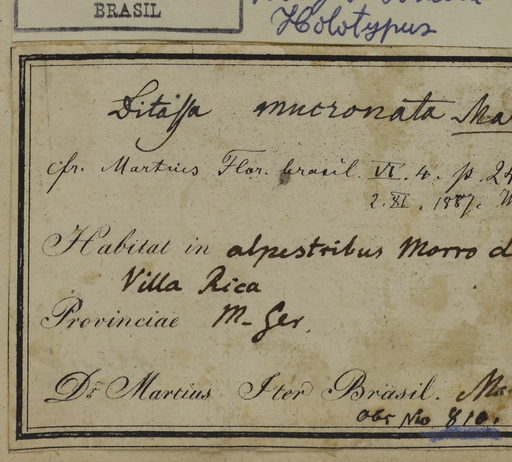 BRASIL
Holotypus
Ditassa mucronata Ma
cfr. Martius Flor. brasil. VI. 4. p. 24
2. XI. 1887. W
Habitat in alpestribus Morro d
Villa Rica
Provinciae M. Ger.
Dr. Martius Iter Brasil. M
Obs No 810.